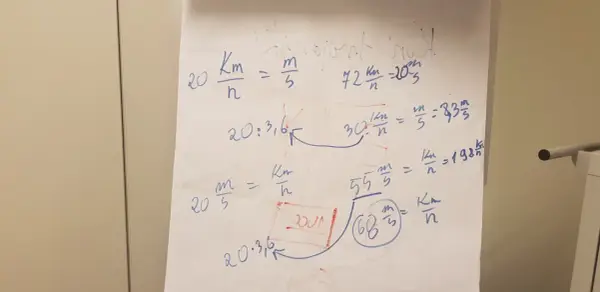 20 Km/h = m/s
72 Km/h = 20 m/s
20 : 3,6
30 Km/h = m/s = 8,3 m/s
20 m/s = Km/h
55 m/s = Km/h = 198 Km/h
68 m/s = Km/h
20 · 3,6